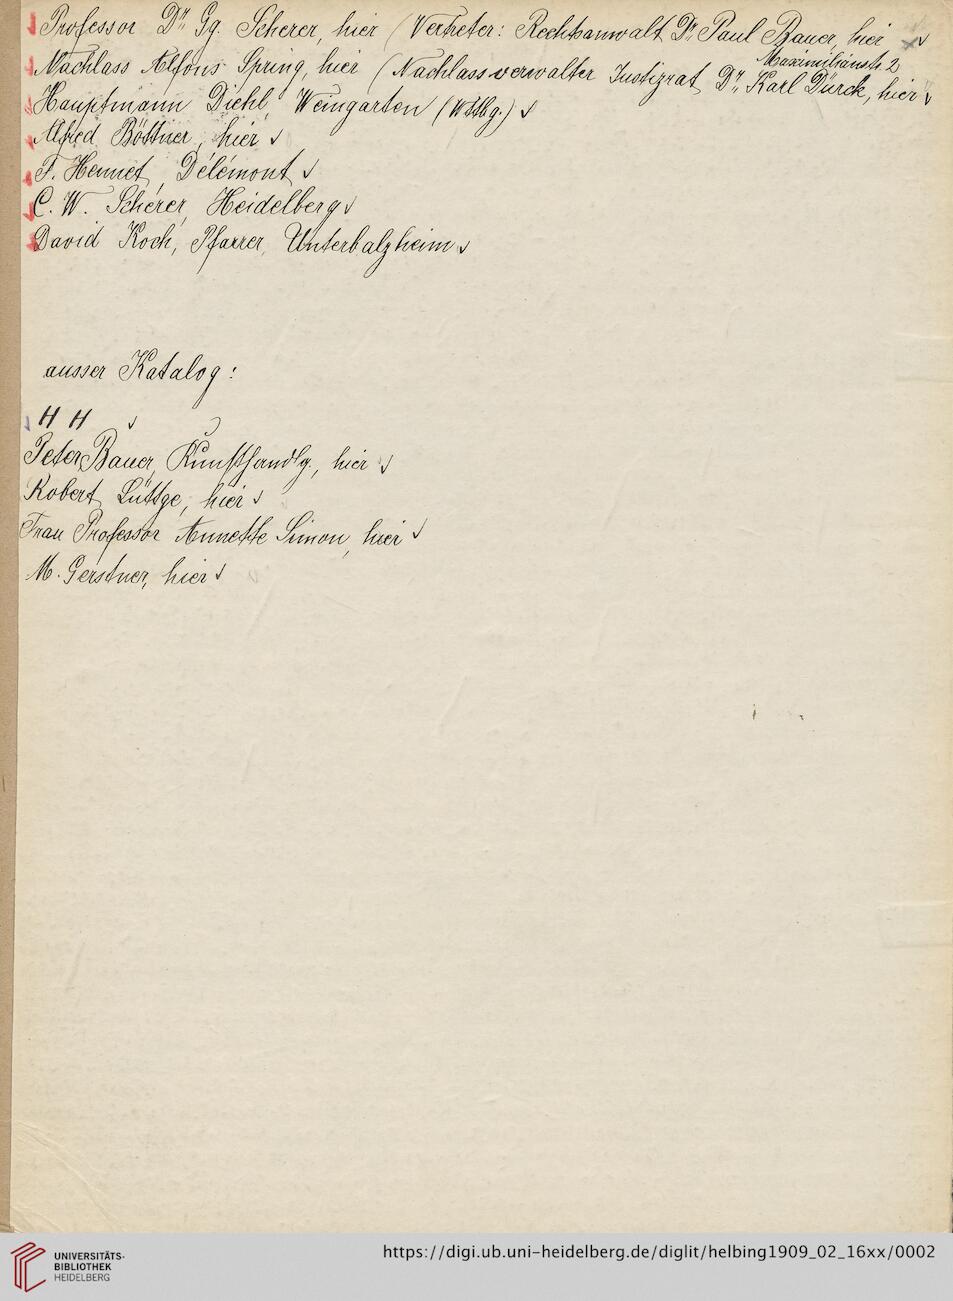 Professor Dr. Gg. Scherer, hier (Vertreter: Rechtsanwalt Dr. Paul Bauer, hier
Maximilianstr. 2
Nachlass Alfons Spring, hier (Nachlassverwalter Justizrat Dr. Karl Dürck, hier
Hauptmann Diehl, Weingarten (Wttbg.)
Alfred Böttner, hier
F. Hennet, Délémont
C. W. Scherer, Heidelberg
David Koch, Pfarrer, Unterbalzheim
ausser Katalog:
H H
Peter Bauer, Kunsthandlg., hier
Robert Lüttge, hier
Frau Professor Annette Simon, hier
M. Gerstner, hier
UNIVERSITÄTS-
BIBLIOTHEK
HEIDELBERG
https://digi.ub.uni-heidelberg.de/diglit/helbing1909_02_16xx/0002